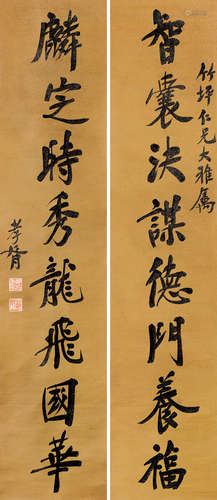 竹坪仁兄大雅属
智囊決謀德門養福
麟定時秀龍飛國華
孝胥